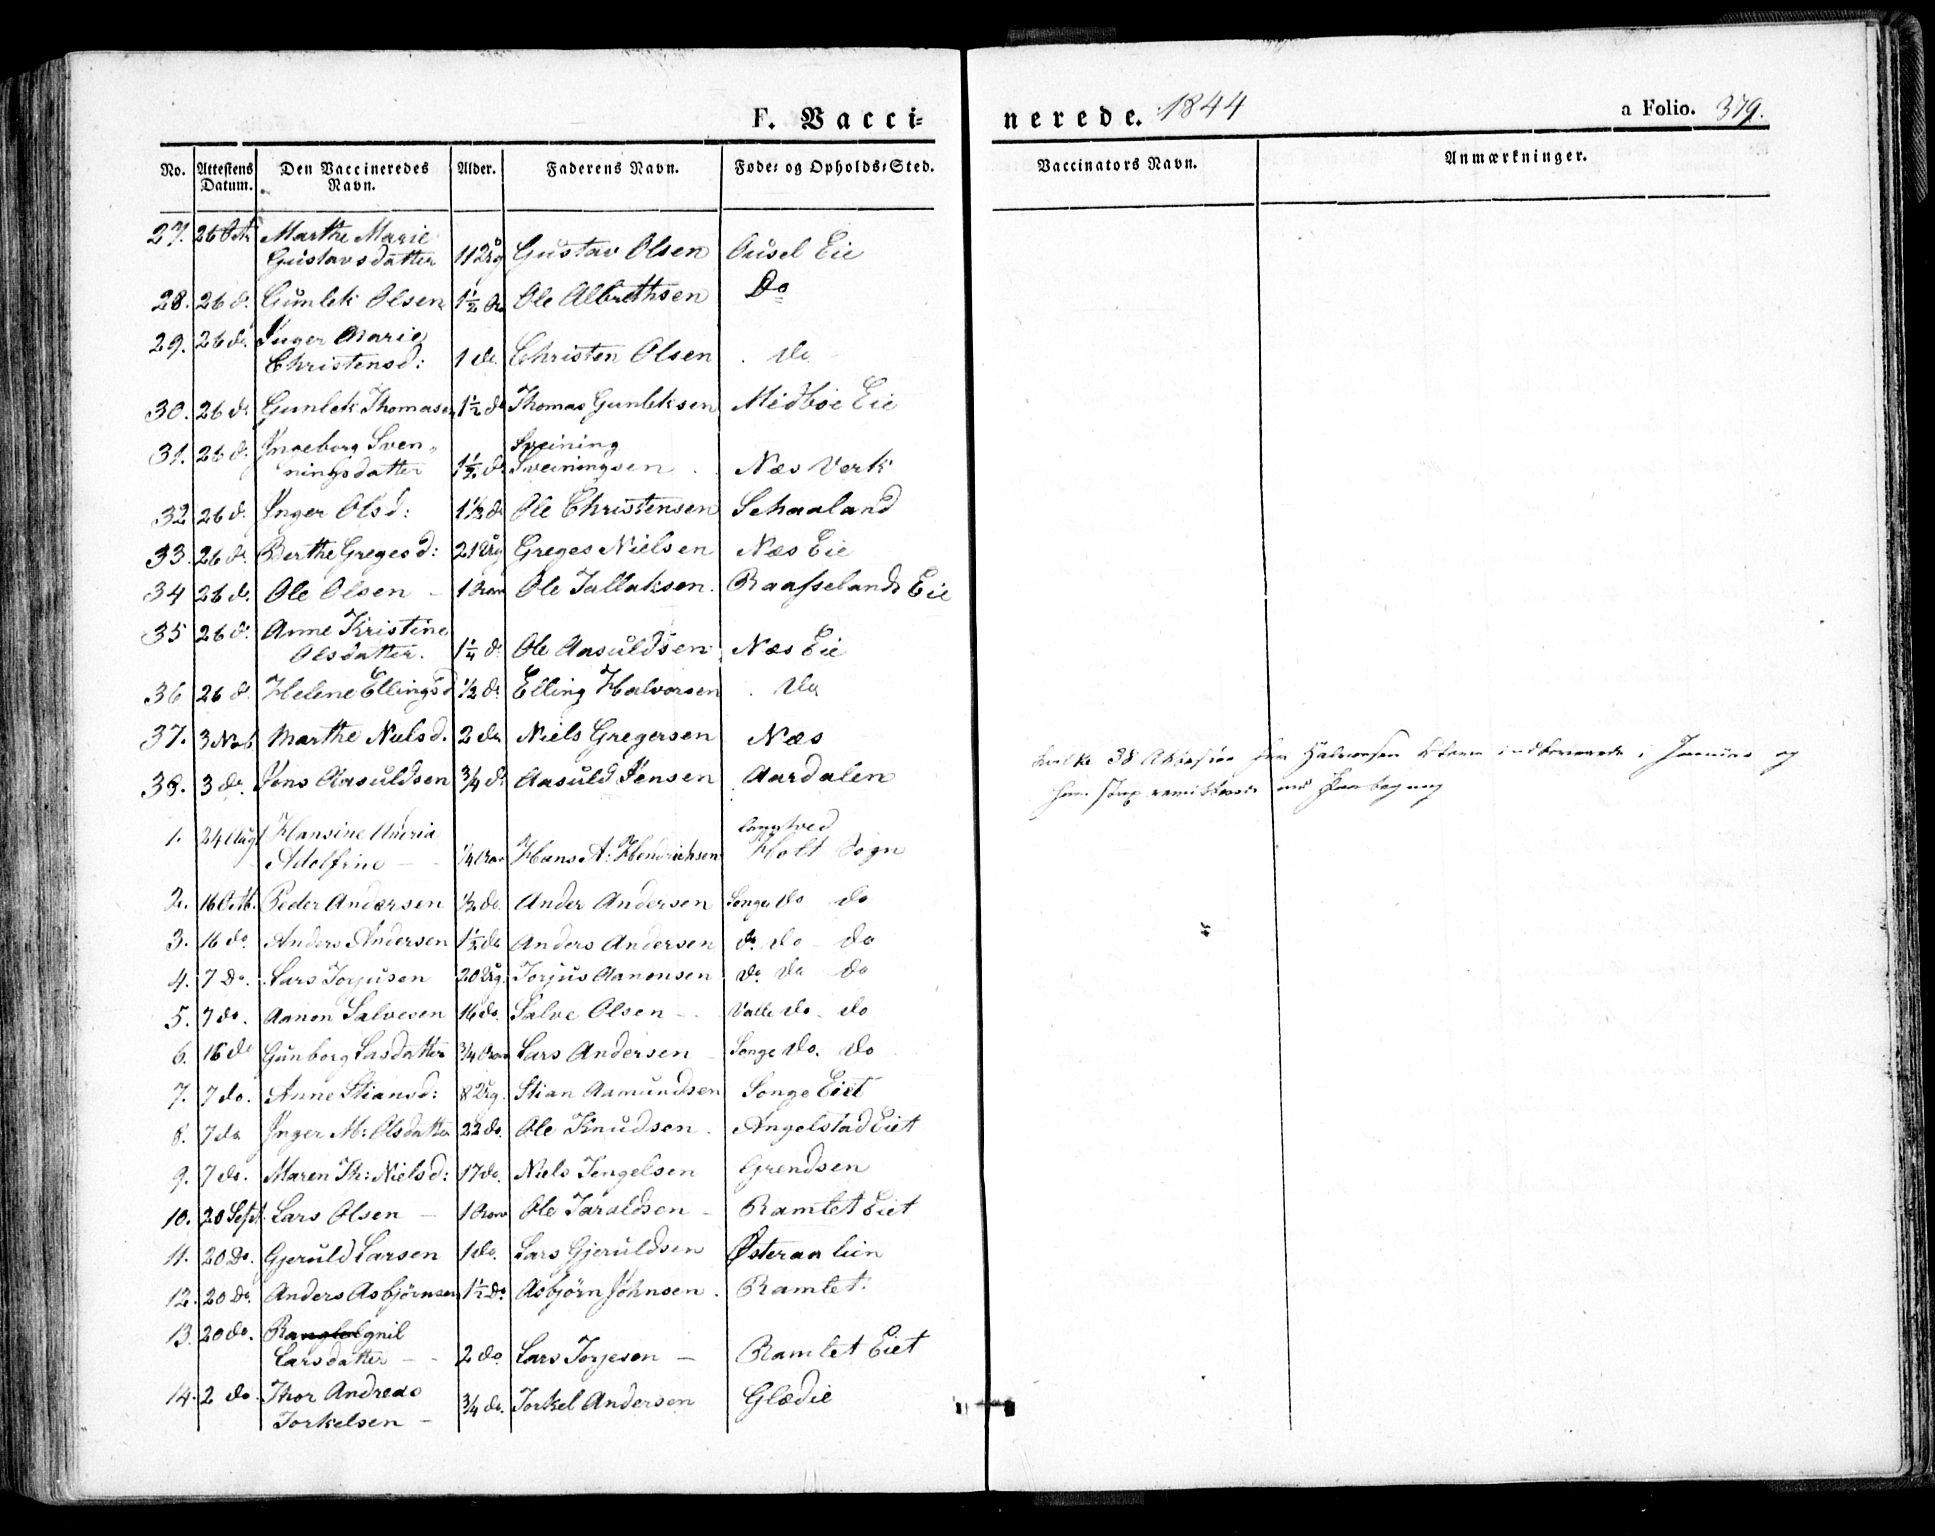 F. Vacci=
nerede. 1844
a Folio. 379.
No. Attestens Datum. Den Vaccineredes Navn. Alder. Faderens Navn. Føde= og Opholds=Sted. Vaccinators Navn. Anmærkninger.
27. 26 Oct Marthe Marie
Gustavsdatter 11 Aug Gustav Olsen Ausel Eie
28. 26 d. Gunlek Olsen 1½ Ole Albrethsen Do
29. 26 do. Inger Marie
Christensd: 1 do. Christen Olsen do
30. 26 do Gunlek Thomasen 1½ do Thomas Gunleksen Midböe Eie
31. 26 d. Ingeborg Sven- Sveining
ningsdatter 1½ d. Sveiningsen Næs Verk
32 26 d. Inger Olsd: 1½ do Ole Christensen Schaaland
33. 26 do. Berthe Gregesd: 21 Greges Nielsen Næs Eie
34 26 do. Ole Olsen — 1 Ole Tallaksen. Raafselands Eie
35 26 d. Anne Kristine
Olsdatter. 1¼ d. Ole Aasuldsen Næs Eie
36 26 d. Helene Ellingsd ½ do. Elling Halvorsen do
37. 3 Nov Marthe Nielsd. 2 do Niels Gregersen Næs
38. 3 do. Jens Aasuldsen ¾ d. Aasuld Jensen Aardalen
38 Halvorsen i og
1. 24 Aug Hansine Maria Langtved
Adolfine — ¼ Hans A: Hendrichsen Holt Sogn
2. 16 Octb. Peder Andersen ½ do. Ander Andersen Songe do do
3. 16 do. Anders Andersen 1½ do Anders Andersen do. do do
4. 7 Do. Lars Torjusen 20 Torjus Aanonsen do. do do
5. 7 do. Aanon Salvesen 16 do. Salve Olsen — Valle do. do
6. 16 do Gunborg Lasdatter ¾ Lars Andersen Songe do. do
7. 7 do. Anne Stiansd: 8 Stian Aamundsen Songe Eiet
8. 7 do Inger M: Olsdatter 22 do. Ole Knudsen. Angelstad Eiet
9. 7 do. Maren Th: Nielsd: 17 do. Niels Tengelsen Grendsen
10. 20 Sept. Lars Olsen — 1 Ole Taraldsen — Ramlet Eiet
11. 20 Do. Gjeruld Larsen 1 do. Lars Gjeruldsen Østeraa
12. 20 Do. Anders Asbjörnsen 1½ Do Asbjörn Johnsen. Ramlet.
13. 20 do. gnil
Larsdatter — 2 do Lars Torjesen — Ramlet Eiet
14. 2 do. Thor Andreas
Torkelsen — ¾ do. Torkel Andersen Glædie